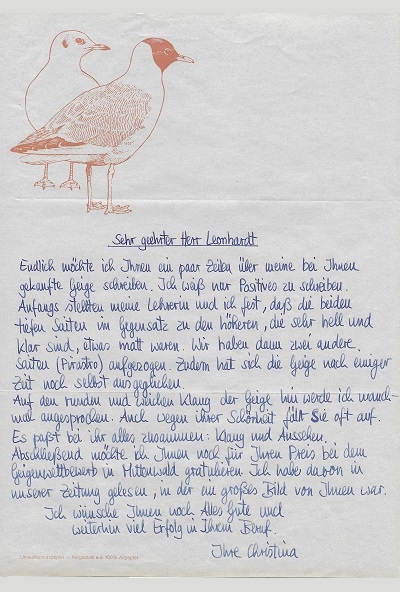 Sehr geehrter Herr Leonhardt
Endlich möchte ich Ihnen ein paar Zeilen über meine bei Ihnen
gekaufte Geige schreiben. Ich weiß nur Positives zu schreiben.
Anfangs stellten meine Lehrerin und ich fest, daß die beiden
tiefen Saiten im Gegensatz zu den höheren, die sehr hell und
klar sind, etwas matt waren. Wir haben dann zwei andere
Saiten (Pirastro) aufgezogen. Zudem hat sich die Geige nach einiger
Zeit noch selbst ausgeglichen.
Auf den runden und weichen Klang der Geige hin werde ich manch-
mal angesprochen. Auch wegen ihrer Schönheit fällt sie oft auf.
Es paßt bei ihr alles zusammen: Klang und Aussehen.
Abschließend möchte ich Ihnen noch für Ihren Preis bei dem
Geigenwettbewerb in Mittenwald gratulieren. Ich habe davon in
unserer Zeitung gelesen, in der ein großes Bild von Ihnen war.
Ich wünsche Ihnen noch Alles Gute und
weiterhin viel Erfolg in Ihrem Beruf.
Ihre Christina
100% Altpapier